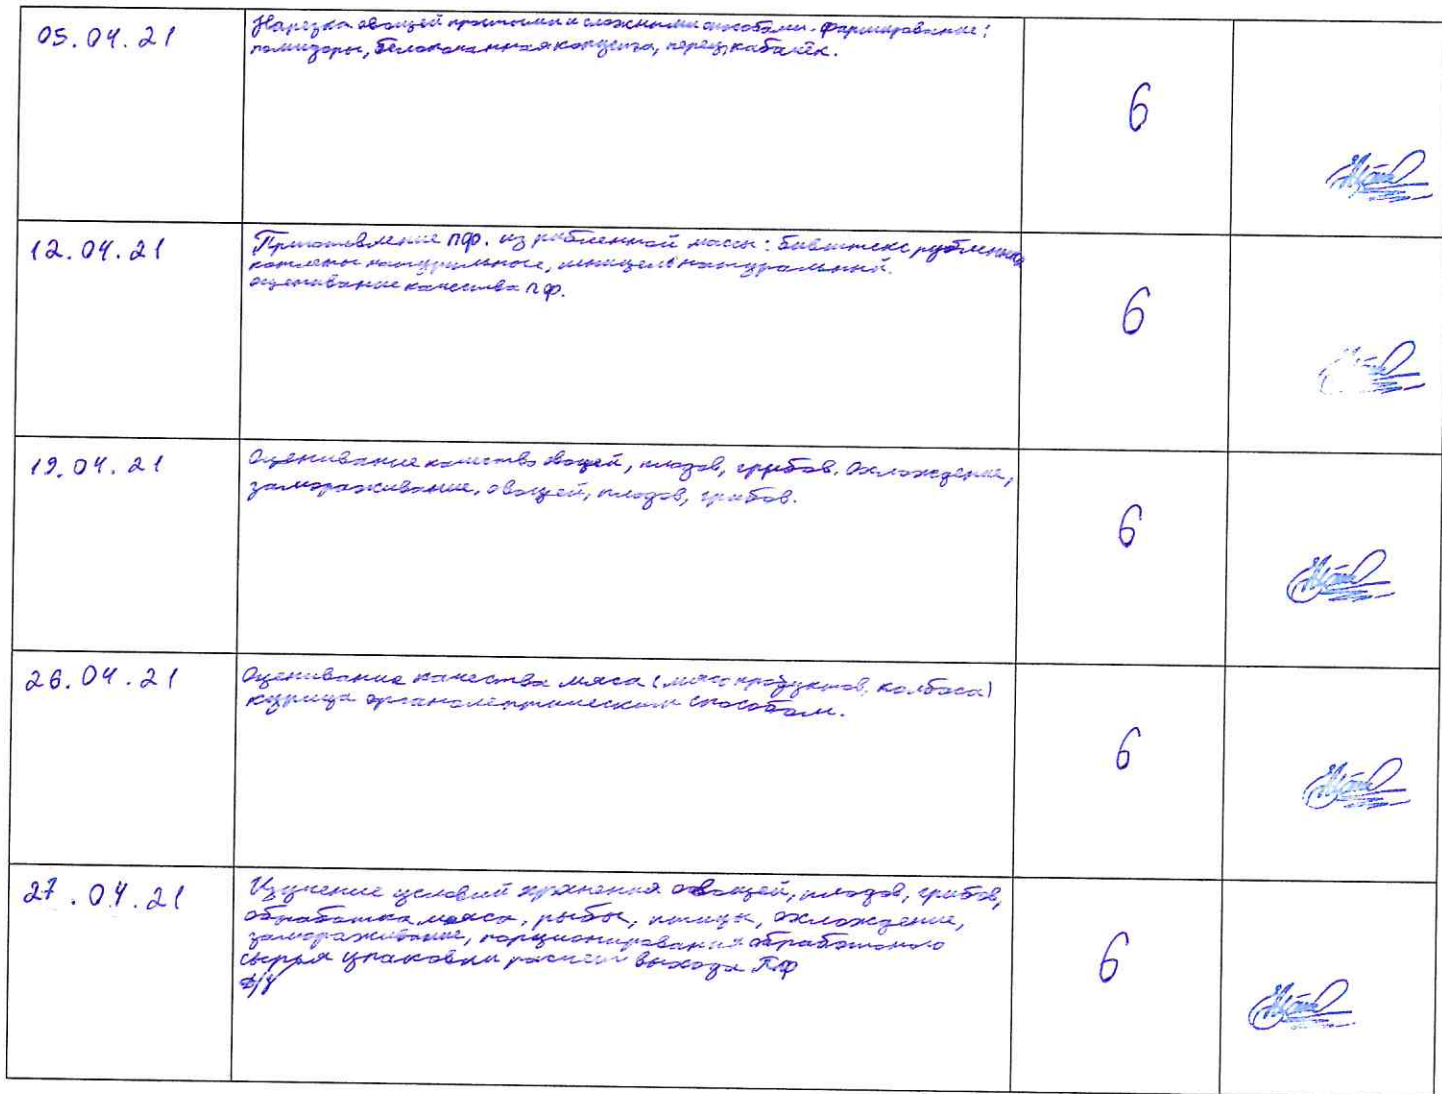 05.04.21
Нарезка овощей простыми и сложными способами. Фарширование:
помидоры, белокочанная капуста, перец, кабачёк.
6
12.04.21
Приготовление пф. из рубленной массы: бивштекс рубленный
котлеты натуральное, шницель натуральный.
оценивание качества пф.
6
19.04.21
Оценивание качество овощей, плодов, грибов. Охлождение,
замораживание, овощей, плодов, грибов.
6
26.04.21
Оценивание качества мяса (мясо продуктов, колбаса)
курица органолептическим способом.
6
27.04.21
Изучение условий хранения овощей, плодов, грибов,
обработка мяса, рыбы, птицы, охлождение,
замораживание, порционирования обработаного
сырья упаковки расчет выхода ПФ
6